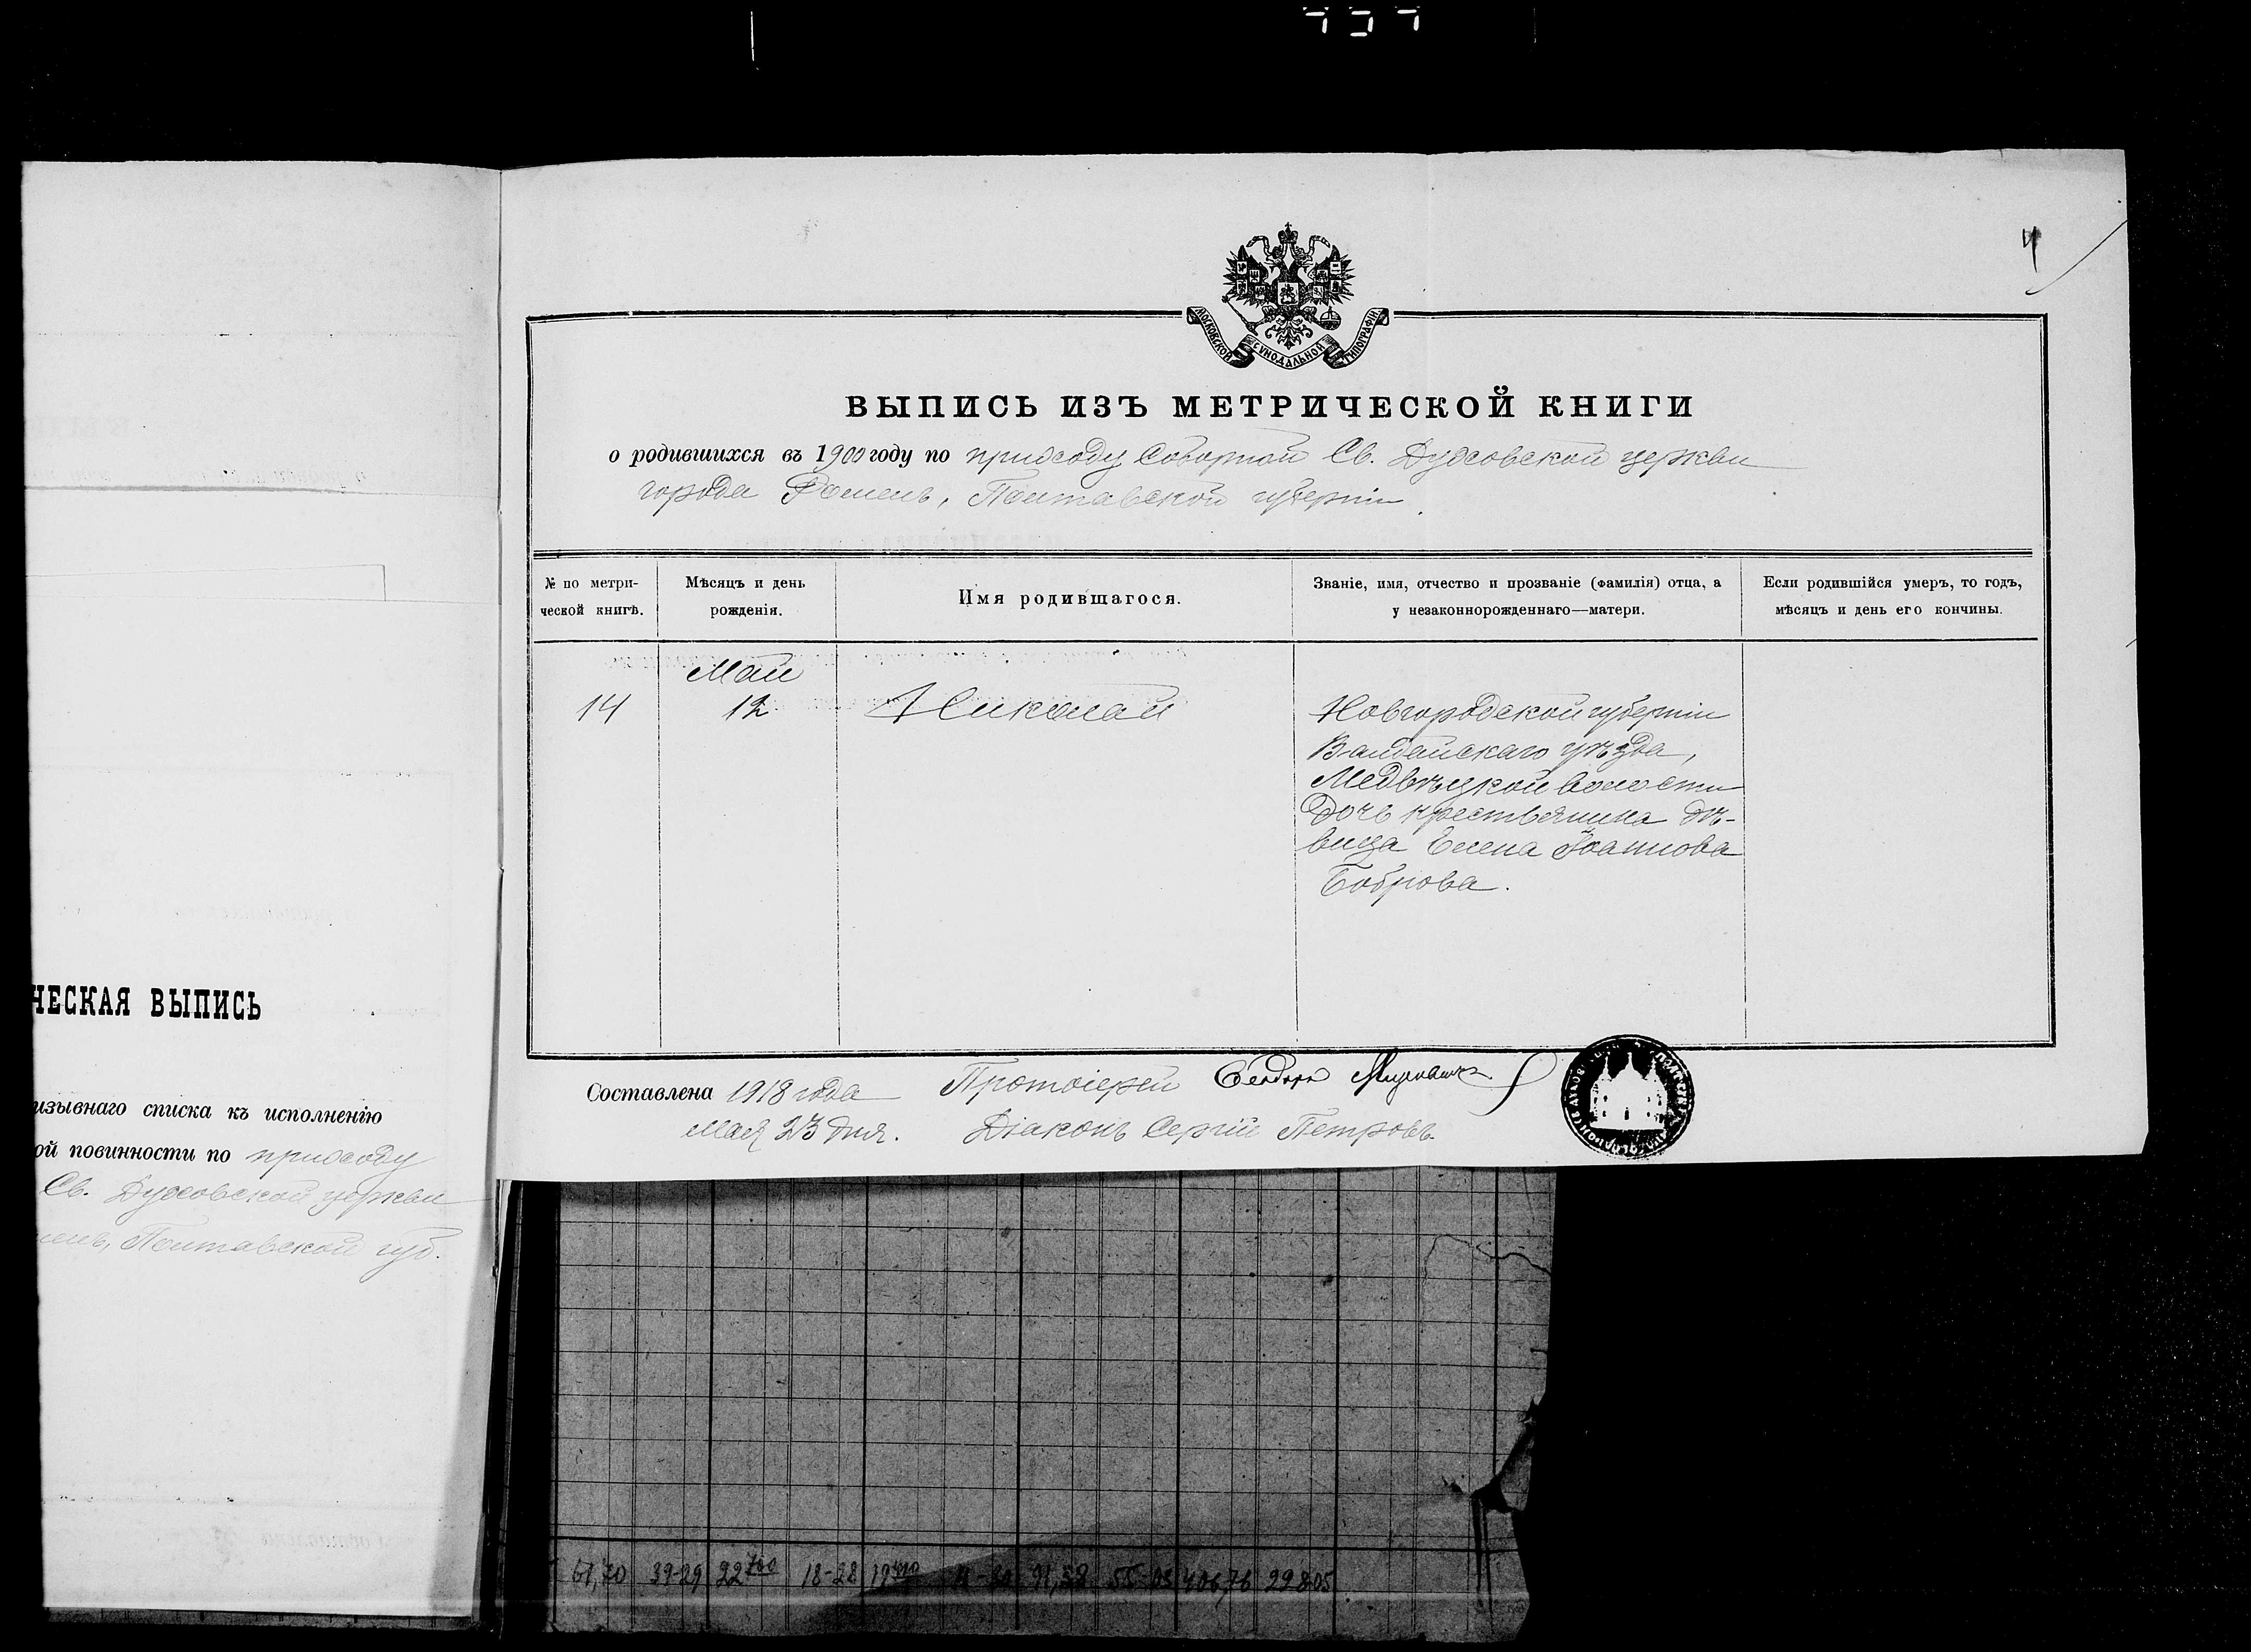 ЧЕСКАЯ ВЫПИСЬ
изывнаго списка къ исполненію
ой повинности по приходу
Св. Духовской церкви
Полтавской губ.
4
МОСКОВСКОЙ СѴНОДАЛЬНОЙ ТИПОГРАФІИ
ВЫПИСЬ ИЗЪ МЕТРИЧЕСКОЙ КНИГИ
о родившихся въ 1900 году по приходу Соборной Св. Духовской церкви
города Ромень, Полтавской губерніи.
№ по метри-
ческой книгѣ.
Мѣсяцъ и день
рожденія.
Имя родившагося.
Званіе, имя, отчество и прозваніе (фамилія) отца, а
у незаконнорожденнаго—матери.
Если родившійся умеръ, то годъ,
мѣсяцъ и день его кончины.
14
Май
12
Николай
Новгородской губерніи
Валдайскаго уѣзда,
Медвѣцкой волости
дочь крестьянина дѣ-
вица Елена Іоаннова
Боброва.
Составлена 1918 года
мая 23 дня.
Протоіерей Ѳеодоръ
Діаконъ Сергій Петровъ.
61,70 39-29 22 700 18-28 91,38 406,76